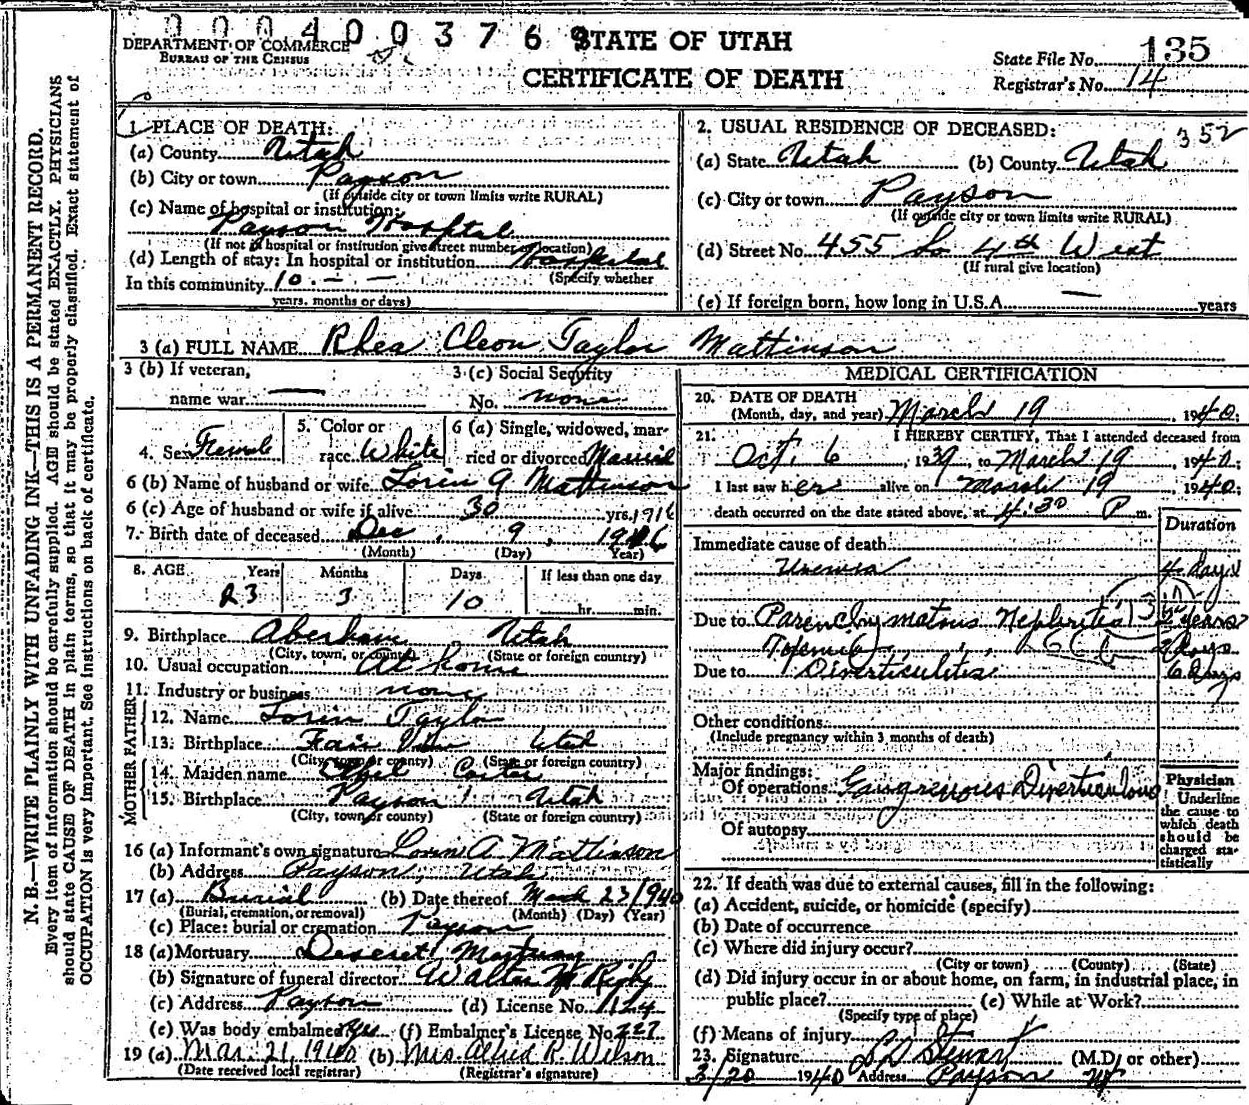 0004003768
DEPARTMENT OF COMMERCE
BUREAU OF THE CENSUS
STATE OF UTAH
CERTIFICATE OF DEATH
State File No. 135
Registrar's No. 14
N. B.—WRITE PLAINLY WITH UNFADING INK—THIS IS A PERMANENT RECORD.
Every item of information should be carefully supplied. AGE should be stated EXACTLY. PHYSICIANS
should state CAUSE OF DEATH in plain terms, so that it may be properly classified. Exact statement of
OCCUPATION is very important. See instructions on back of certificate.
1. PLACE OF DEATH:
(a) County Utah
(b) City or town Payson
(If outside city or town limits write RURAL)
(c) Name of hospital or institution:
Payson Hospital
(If not in hospital or institution give street number or location)
(d) Length of stay: In hospital or institution Hospital
(Specify whether
In this community 10 - -
years, months or days)
2. USUAL RESIDENCE OF DECEASED: 352
(a) State Utah (b) County Utah
(c) City or town Payson
(If outside city or town limits write RURAL)
(d) Street No. 455 So 4th West
(If rural give location)
(e) If foreign born, how long in U.S.A. — years
3 (a) FULL NAME Rhea Cleon Taylor Mattinson
3 (b) If veteran,
name war —
3 (c) Social Security
No. none
4. Sex Female
5. Color or
race White
6 (a) Single, widowed, mar-
ried or divorced Married
6 (b) Name of husband or wife Loren A Mattinson
6 (c) Age of husband or wife if alive 30 yrs. 1916
7. Birth date of deceased Dec 9, 1916
(Month) (Day) (Year)
8. AGE Years Months Days If less than one day
23 3 10 hr. min.
9. Birthplace Utah
(City, town, or county) (State or foreign country)
10. Usual occupation At home
11. Industry or business none
FATHER
12. Name Loren Taylor
13. Birthplace Fair View Utah
(City, town or county) (State or foreign country)
MOTHER
14. Maiden name Carter
15. Birthplace Payson Utah
(City, town or county) (State or foreign country)
16 (a) Informant's own signature Loren A Mattinson
(b) Address Payson, Utah
17 (a) Burial (b) Date thereof March 23/1940
(Burial, cremation, or removal) (Month) (Day) (Year)
(c) Place: burial or cremation Payson
18 (a) Mortuary Deseret Mortuary
(b) Signature of funeral director Walter M Rigby
(c) Address Payson (d) License No. 124
(e) Was body embalmed Yes (f) Embalmer's License No. 227
19 (a) Mar. 21, 1940 (b) Mrs. Allied R. Wilson
(Date received local registrar) (Registrar's signature)
MEDICAL CERTIFICATION
20. DATE OF DEATH
(Month, day, and year) March 19, 1940;
21. I HEREBY CERTIFY, That I attended deceased from
Oct. 6, 1939, to March 19, 1940;
I last saw her alive on March 19, 1940;
death occurred on the date stated above, at 4:30 P m.
Duration
Immediate cause of death
Uremia 4 days
Due to Parenchymatous Nephritis years
days
Due to Diverticulitis 6 days
Other conditions
(Include pregnancy within 3 months of death)
Major findings:
Of operations Gangrenous Diverticulous
Of autopsy
Physician
Underline
the cause to
which death
should be
charged sta-
tistically
22. If death was due to external causes, fill in the following:
(a) Accident, suicide, or homicide (specify)
(b) Date of occurrence
(c) Where did injury occur?
(City or town) (County) (State)
(d) Did injury occur in or about home, on farm, in industrial place, in
public place? (e) While at Work?
(Specify type of place)
(f) Means of injury
23. Signature L D Stewart (M.D. or other)
3/20 1940 Address Payson Ut